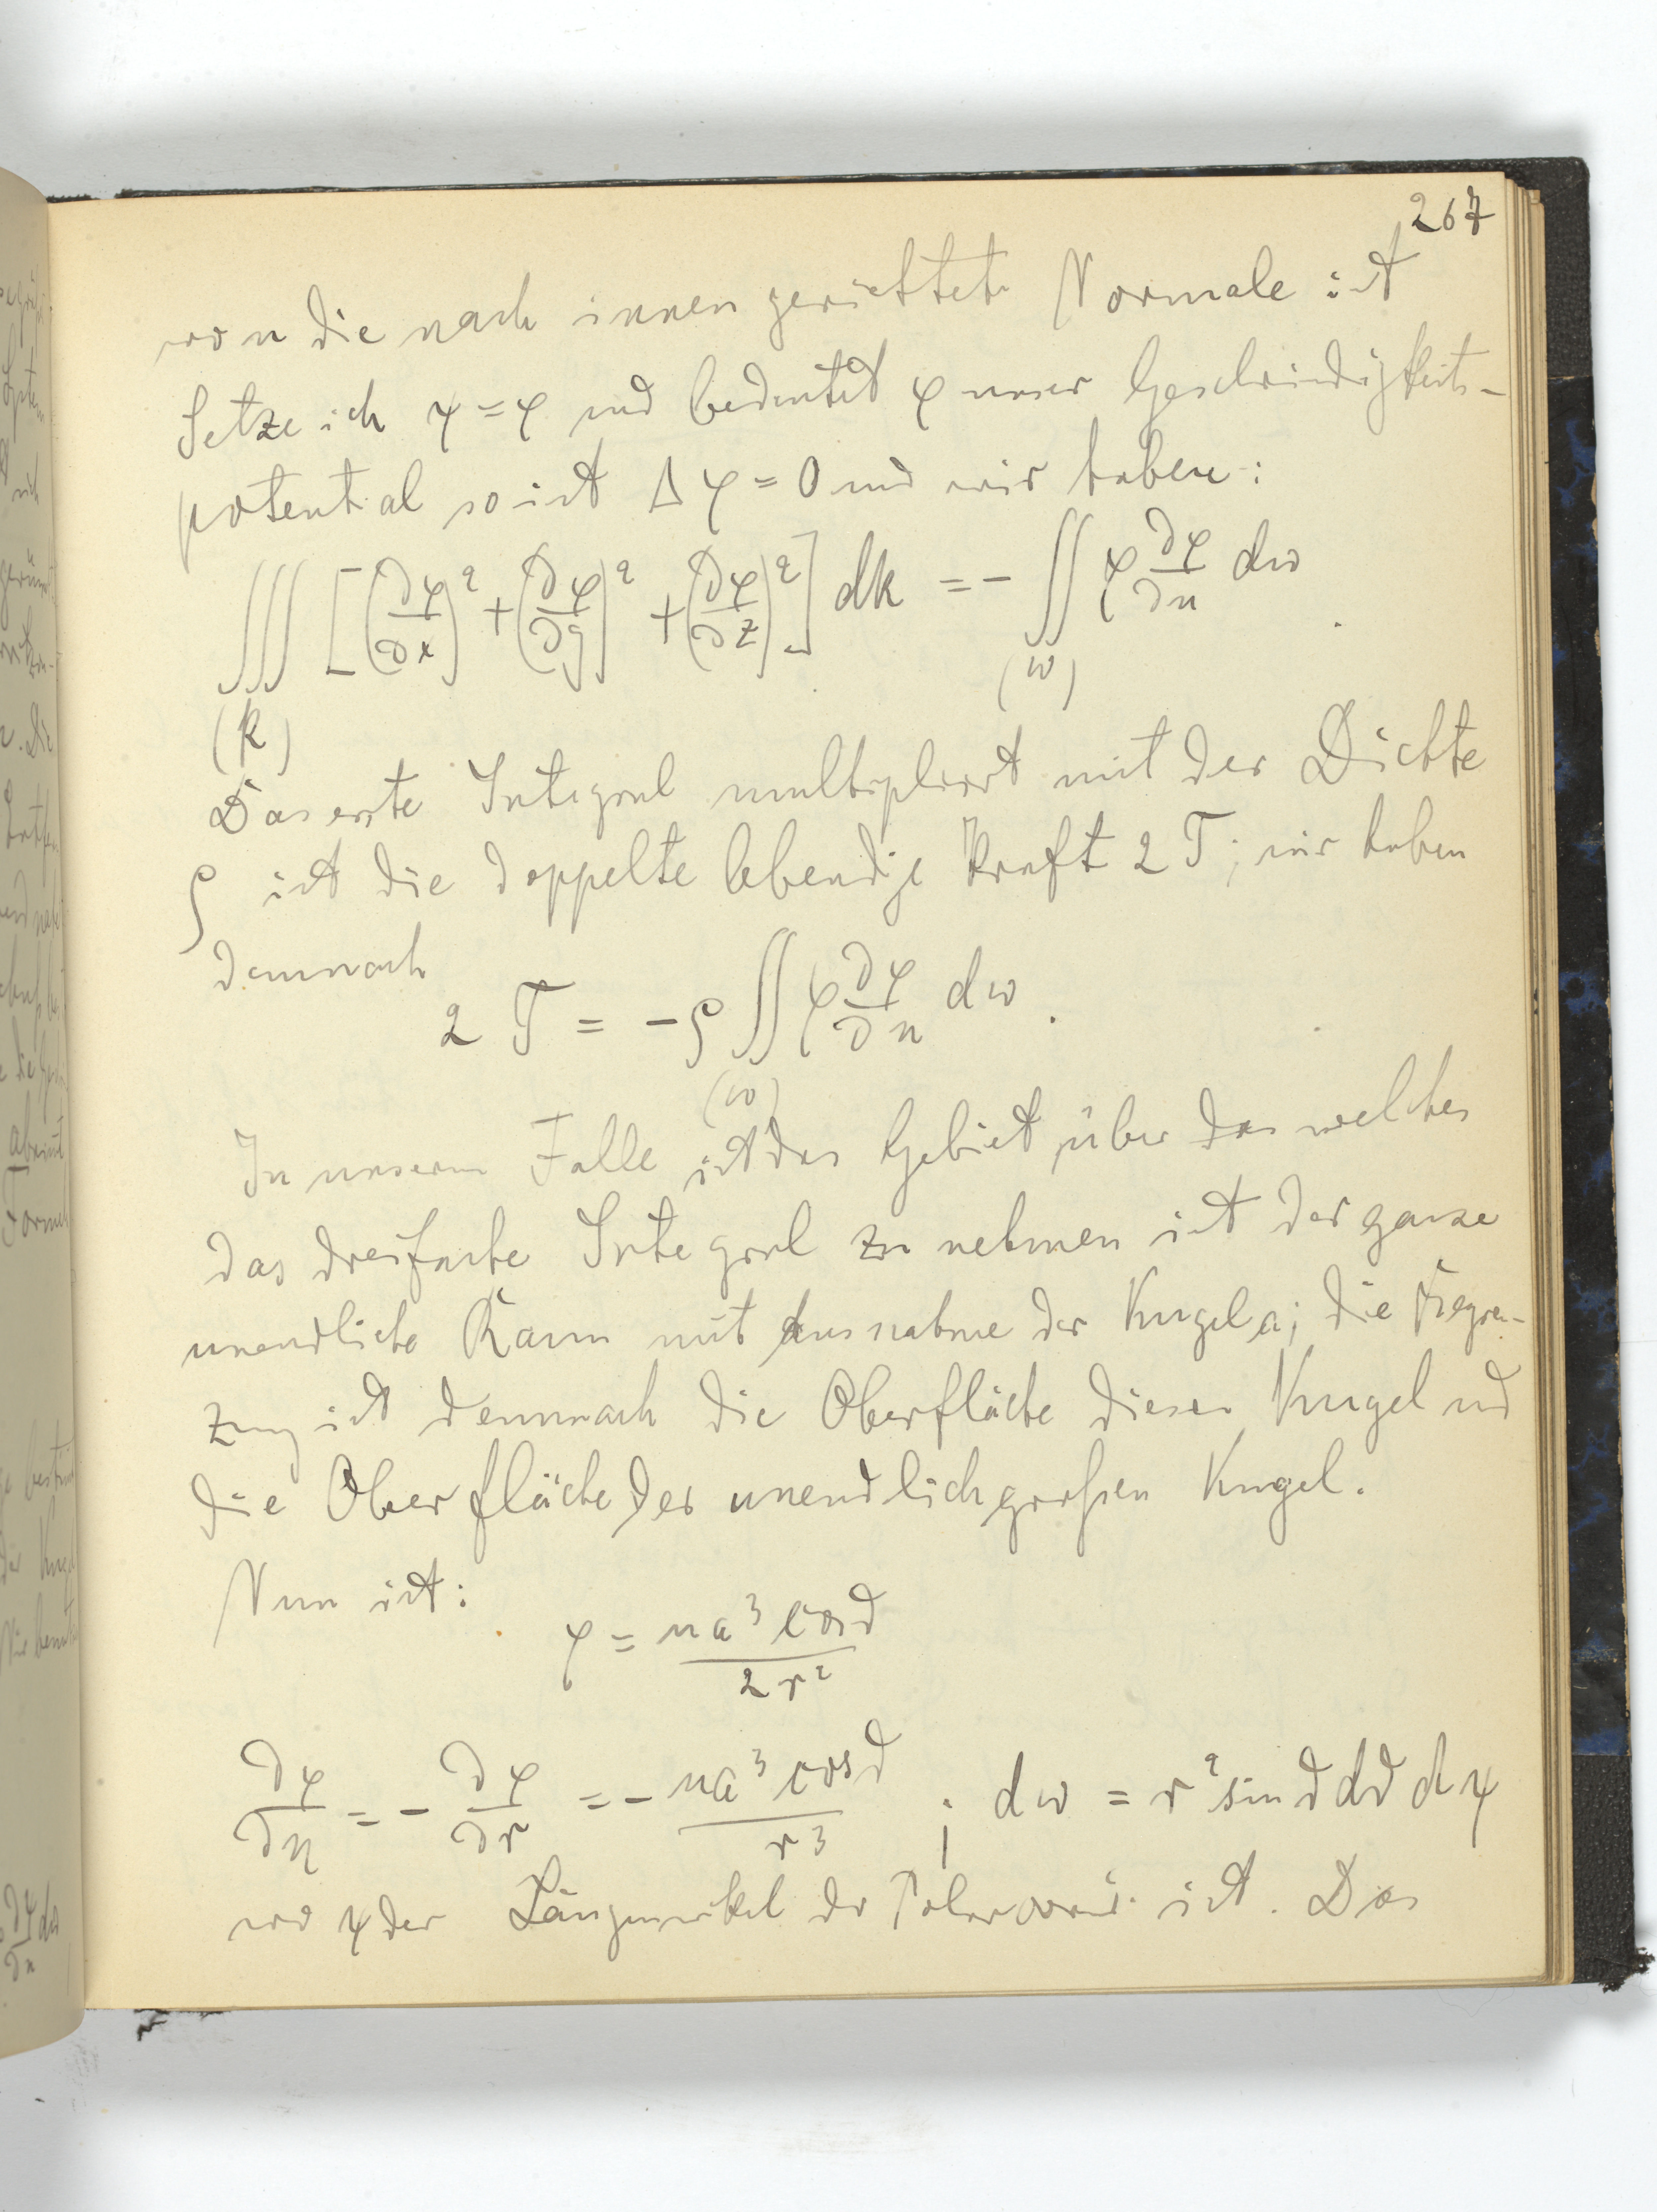 267
wo n die nach innen gerichtete Normale ist
Setze ich ψ = φ und bedeutet φ unser Geschwindigkeits-
potential so ist Δφ = 0 und wir haben:
∭ [(∂φ/∂x)² + (∂φ/∂y)² + (∂φ/∂z)²] dk = - ∬ φ ∂φ/∂n dω.
(k) (ω)
Das erste Integral multipliziert mit der Dichte
ρ ist die doppelte lebendige Kraft 2T; wir haben
demnach
2T = -ρ ∬ φ ∂φ/∂n dω.
(ω)
In unserm Falle ist das Gebiet, über das welches
das dreifache Integral zu nehmen ist der ganze
unendliche Raum mit Ausnahme der Kugel a; die Begren-
zung ist demnach die Oberfläche dieser Kugel und
die Oberfläche der unendlich großen Kugel.
Nun ist:
φ = ua³cosϑ / 2r²
∂φ/∂n = - ∂φ/∂r = - ua³cosϑ / r³ ; dω = r² sinϑ dϑ dψ
wo ψ der Längenwinkel der ist. Das